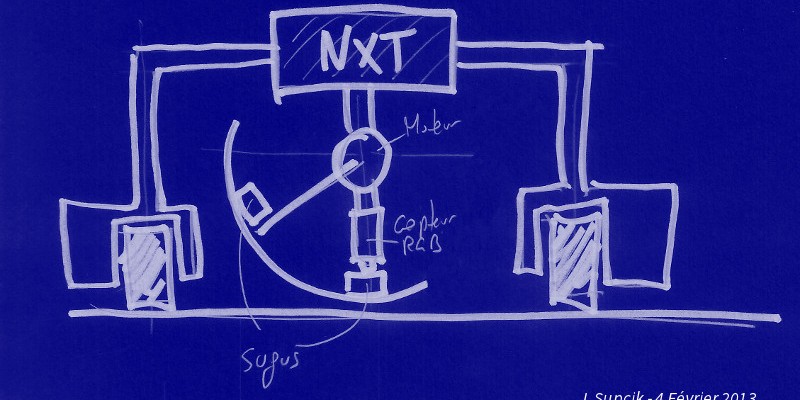 NXT
Moteur
Capteur
RGB
Sugus
J. Suncik - 4 Février 2013